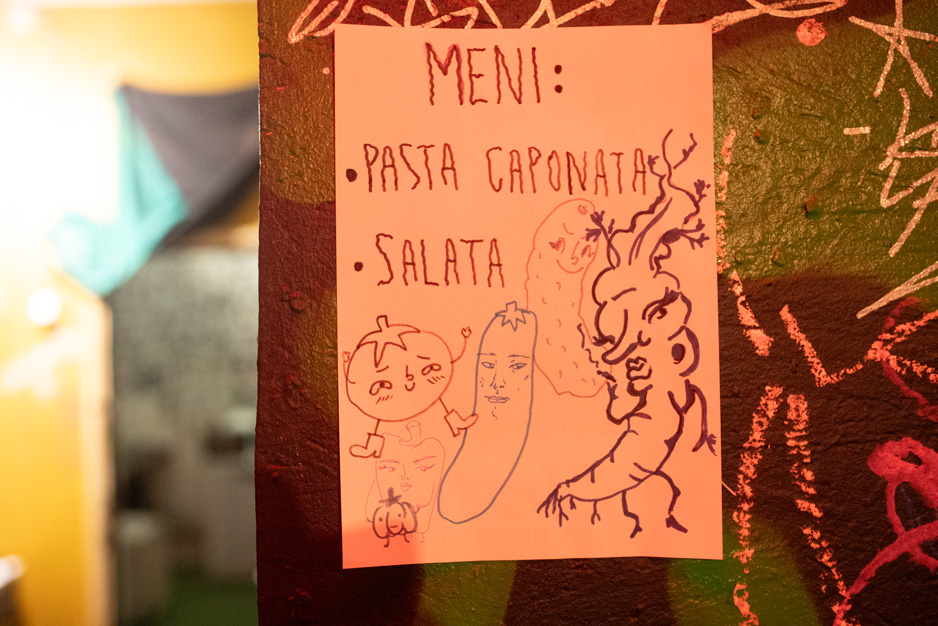 MENI:
• PASTA CAPONATA
• SALATA